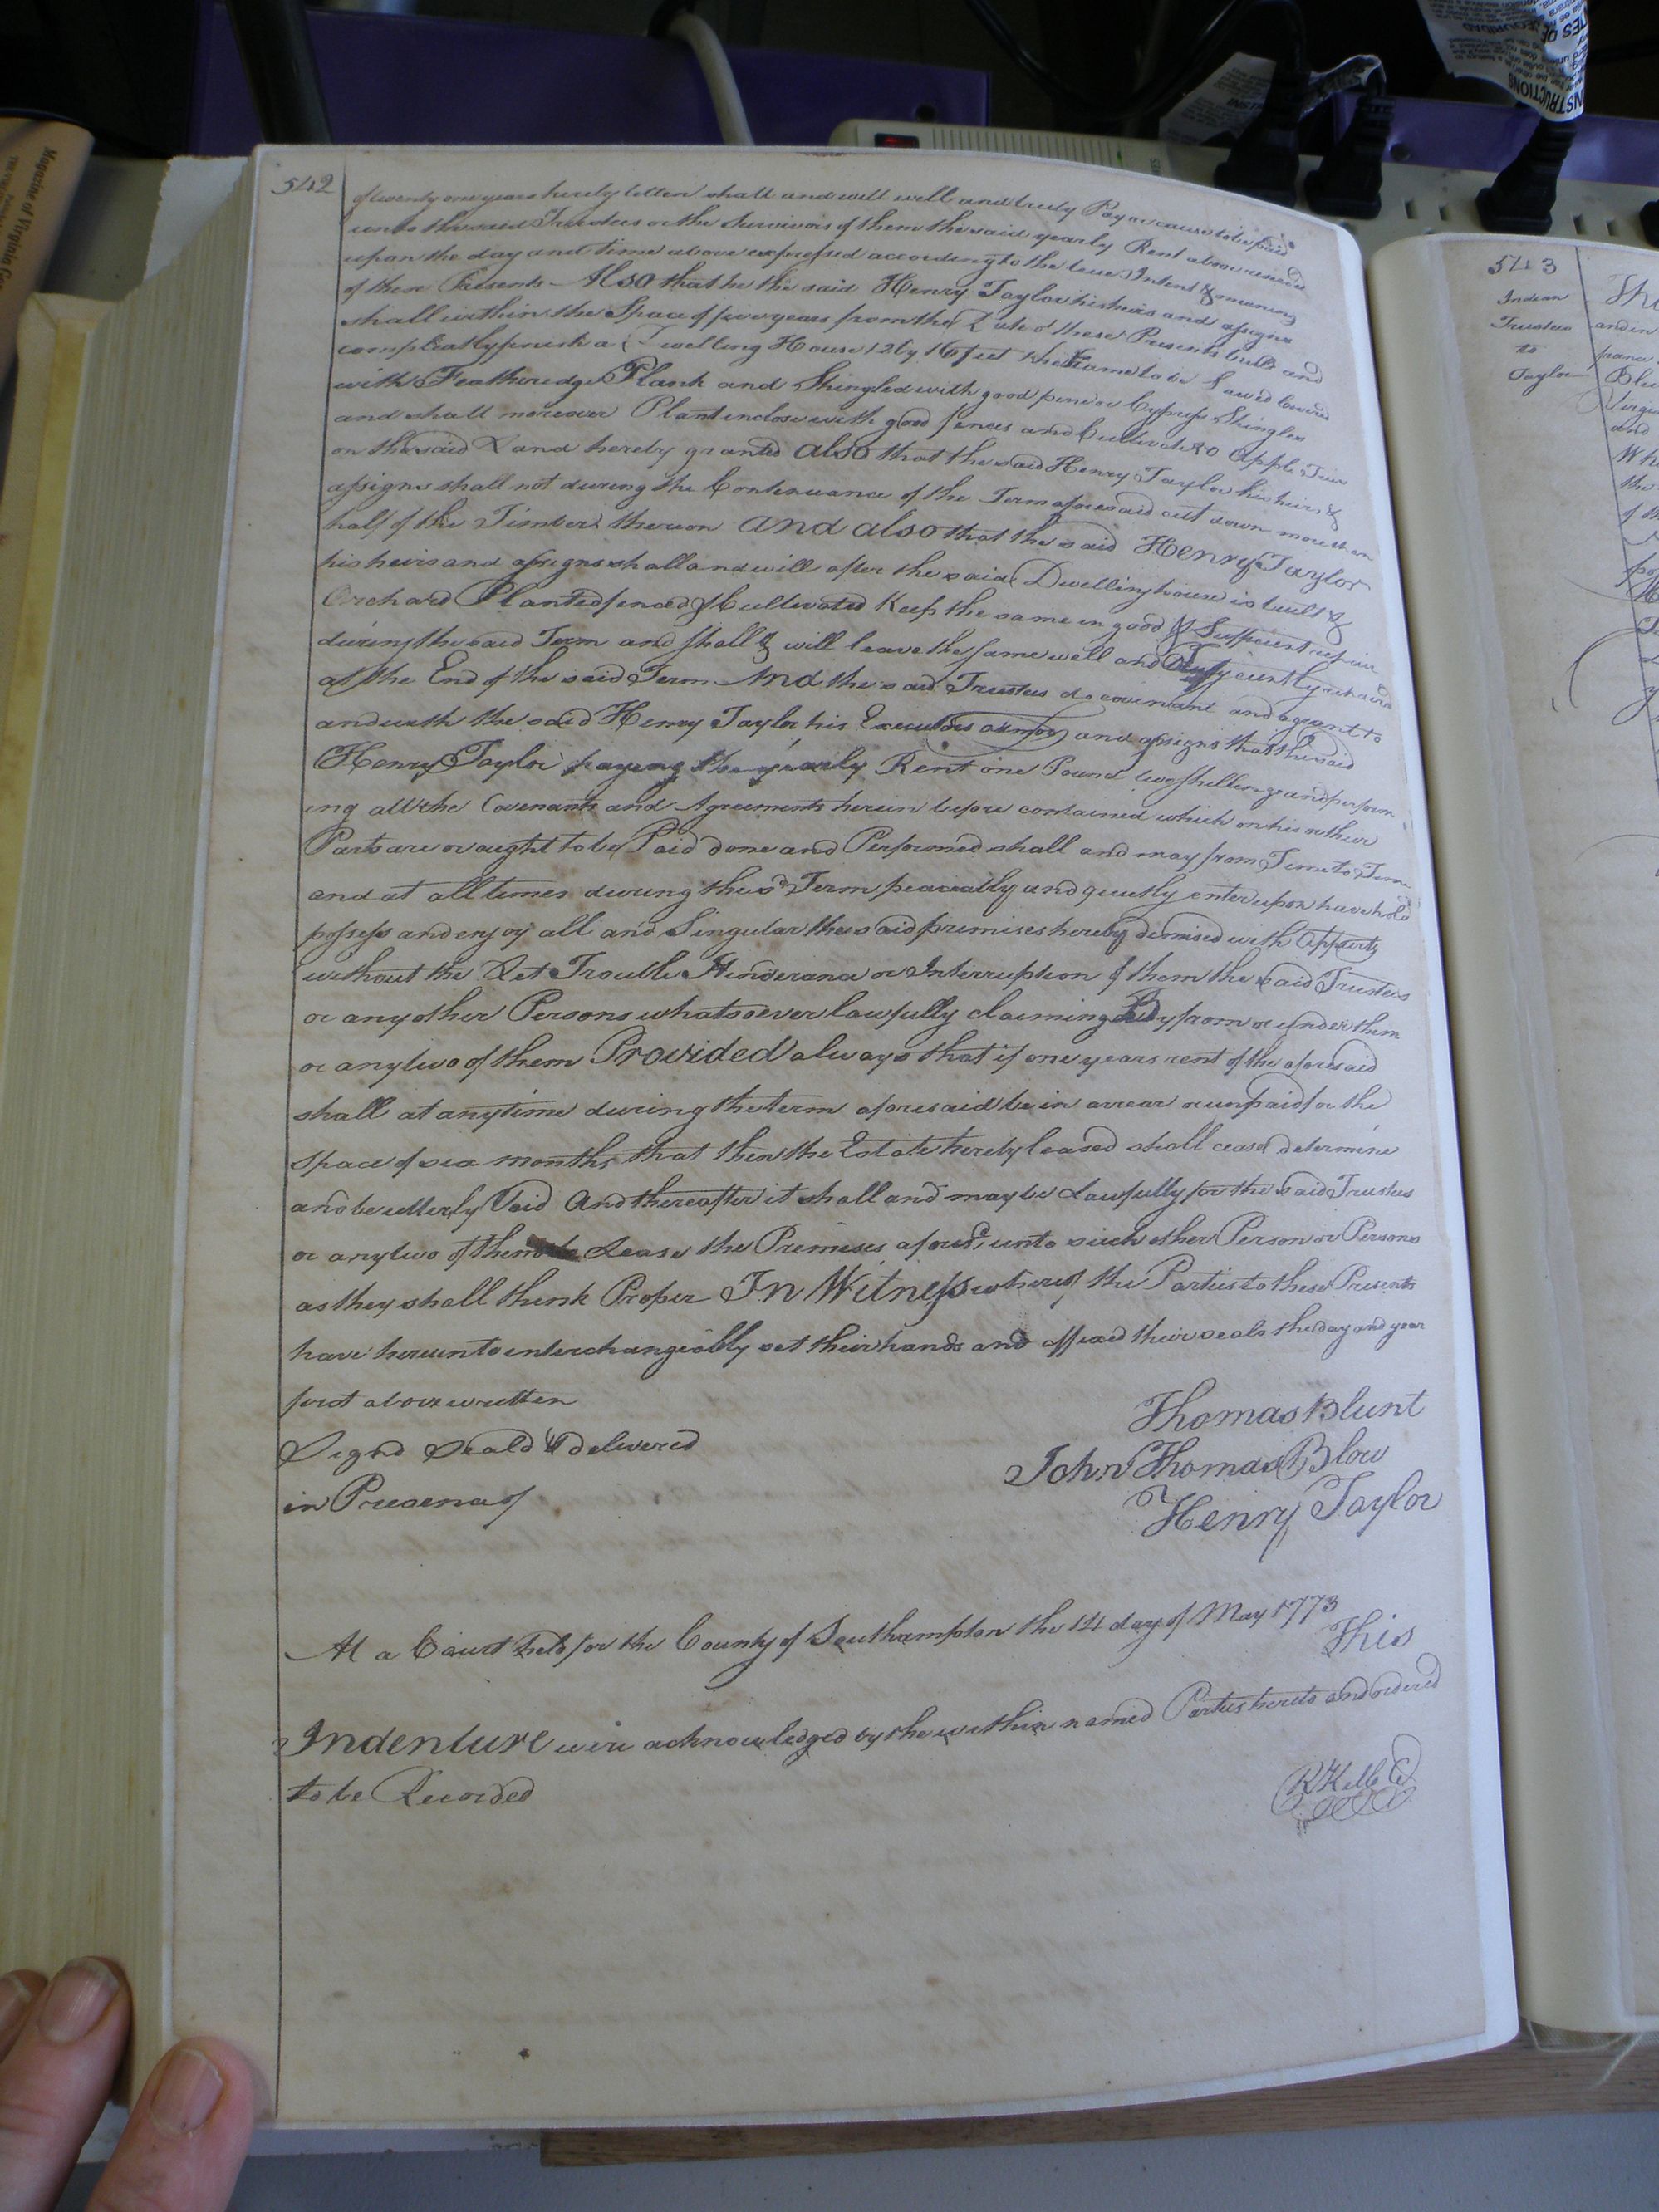 542
of twenty one years hereby letten shall and will well and truly Pay or cause to be paid
unto the said Trustees or the Survivors of them the said yearly Rent above reserved
upon the day and time above expressed according to the true Intent & meaning
of these Presents Also that he the said Henry Taylor his heirs and assigns
shall within the Space of five years from the Date of these Presents build and
compleatly finish a Dwelling House 12 by 16 feet the frame to be Sawed Covered
with Featheredge Plank and Shingled with good pine or Cypress Shingles
and shall moreover Plant inclose with good fences and Cultivate Apple Trees
on the said Land hereby granted also that the said Henry Taylor his heirs &
assigns shall not during the Continuance of the Term aforesaid cut down more than
half of the Timber thereon and also that the said Henry Taylor
his heirs and assigns shall and will after the said Dwelling house is built &
Orchard Planted fenced & Cultivated Keep the same in good & Sufficient repair
during the said Term and shall & will leave the same well and
at the End of the said Term And the said Trustees do covenant and agrant to
and with the said Henry Taylor his Executors admrs and assigns that the said
Henry Taylor paying the yearly Rent one Pound two shillings and perform
ing all the Covenants and Agreements herein before contained which on his or their
Parts are or ought to be Paid done and Performed shall and may from Time to Time
and at all times during the sd Term peaceably and quietly enter upon have hold
possess and enjoy all and Singular the said premises hereby demised with Appurts
without the Let Trouble Hinderance or Interruption of them the said Trustees
or any other Persons whatsoever lawfully claiming By from or under them
or any two of them Provided always that if one years rent of the aforesaid
shall at any time during the term aforesaid be in arrear or unpaid for the
space of six months that then the Estate hereby leased shall cease determine
and be utterly Void And thereafter it shall and may be Lawfully for the said Trustees
or any two of them Lease the Premises aforesd. unto such other Person or Persons
as they shall think Proper In Witness whereof the Parties to these Presents
have hereunto interchangeably set their hands and affixed their seals the day and year
first above written
Signd Seald & delivered
in Presence of
Thomas Blunt
John Thomas Blow
Henry Taylor
At a Court held for the County of Southampton the 14 day of May 1773
This
Indenture were acknowledged by the within named Parties hereto and ordered
to be Recorded
543
Indian
Trustees
to
Taylor
Magazine of Virginia
INSTRUCTIONS